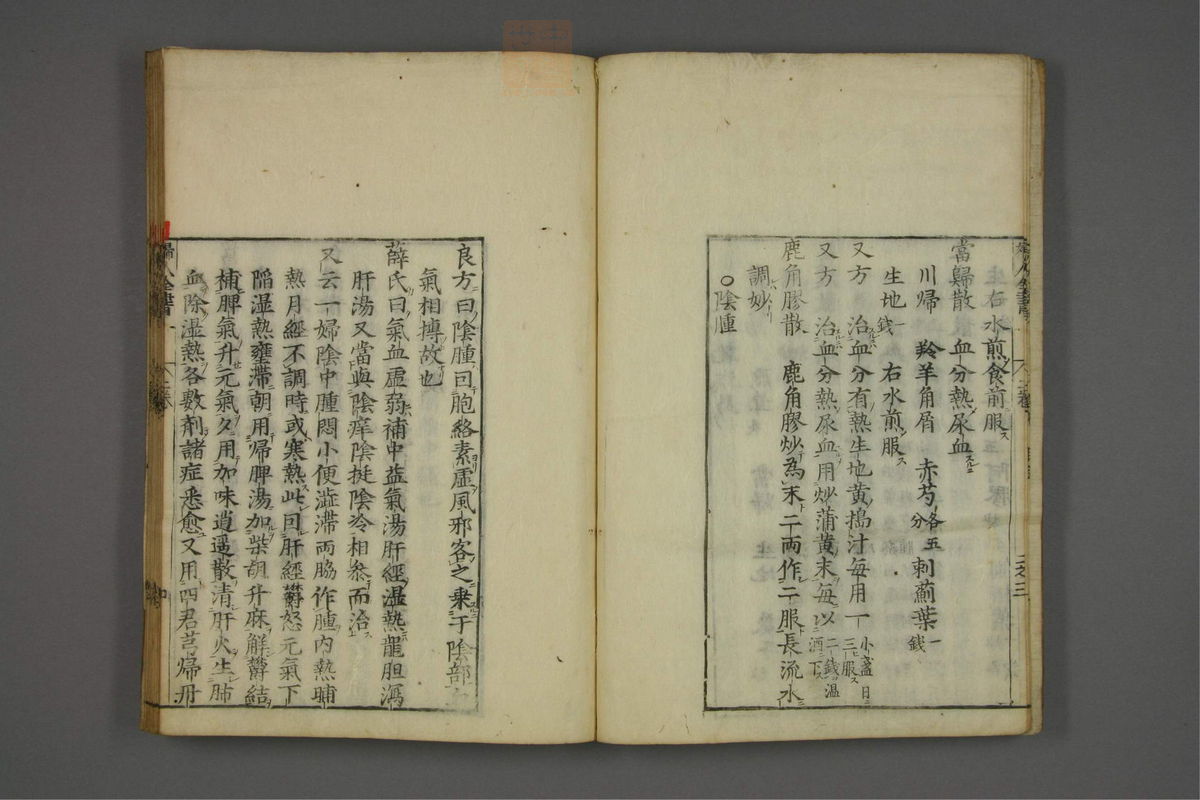 右水煎食前服ス
當歸散 血分熱尿血スルニ
川帰 羚羊角屑 赤芍各五分 刺薊葉一錢
生地一錢 右水煎服ス
又方 治血分有熱生地黄搗汁毎用一小盞日三服ス
又方 治血分熱尿血用炒蒲黄末毎以二錢温酒下ス
鹿角膠散 鹿角膠炒為末二両作二服長流水
調妙
○陰腫
良方曰陰腫因胞絡素虚風邪客之乗于陰部
氣相搏故也
薛氏曰氣血虚弱補中益氣湯肝經湿熱龍胆瀉
肝湯又當與陰痒陰挺陰冷相参而治
又云一婦陰中腫悶小便澁滞両脇作腫内熱晡
熱月經不調時或寒熱此因肝經鬱怒元氣下
陥湿熱壅滞朝用帰脾湯加柴胡升麻解鬱結
補脾氣升元氣夕用加味逍遥散清肝火生肺
血除湿熱各數剤諸症悉愈又用四君芎帰丹
婦人全書